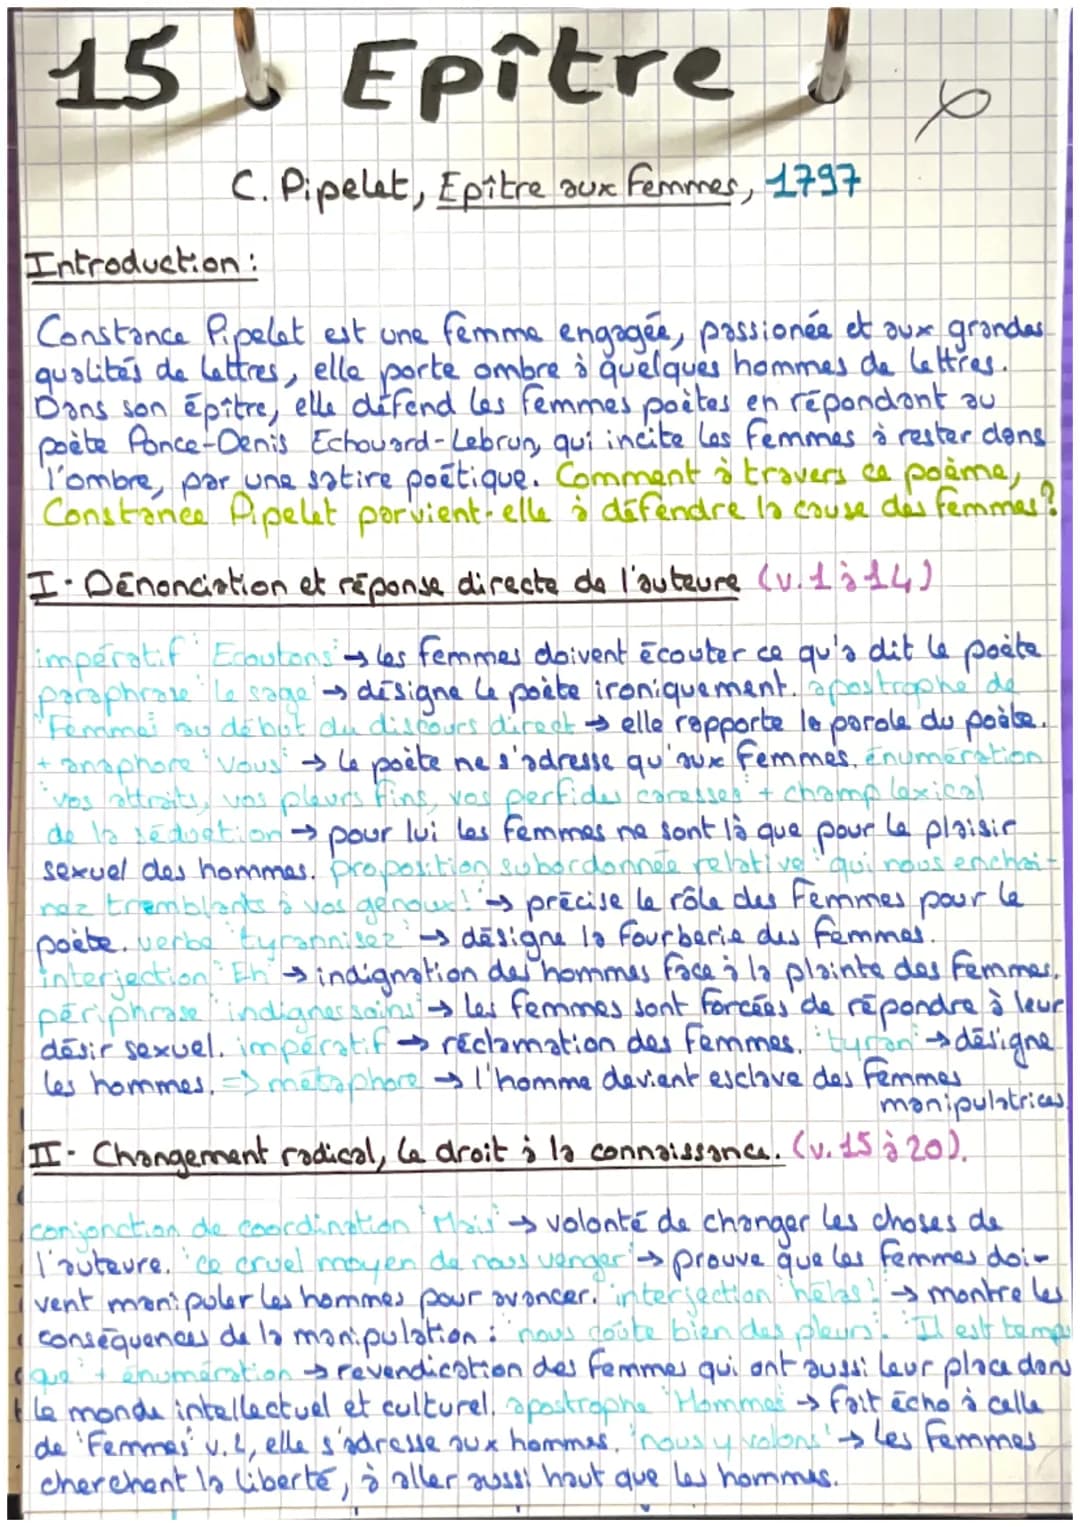 15 Epître
C. Pipelet, Epître aux Femmes, 1797
Introduction :
Constance Pipelet est une femme engagée, passionée et aux grandes
qualités de lettres, elle porte ombre à quelques hommes de lettres.
Dans son épître, elle défend les femmes poètes en répondant au
poète Ponce-Denis Echouard-Lebrun, qui incite les femmes à rester dans
l'ombre, par une satire poétique. Comment à travers ce poème,
Constance Pipelet parvient-elle à défendre la cause des femmes ?
I- Dénonciation et réponse directe de l'auteure (v.1 à 14)
impératif "Ecoutons" → les femmes doivent écouter ce qu'a dit le poète
paraphrase "le sage" → désigne le poète ironiquement. apostrophe de
"Femmes" au début du discours direct → elle rapporte la parole du poète.
+ anaphore "vous" → le poète ne s'adresse qu'aux femmes. énumération
"vos attraits, vos pleurs fins, vos perfides caresses" + champ lexical
de la séduction → pour lui les femmes ne sont là que pour le plaisir
sexuel des hommes. proposition subordonnée relative "qui nous enchai-
nez tremblants à vos genoux!" → précise le rôle des femmes pour le
poète. verbe "tyrannisez" → désigne la fourberie des femmes.
interjection "Eh" → indignation des hommes face à la plainte des femmes.
périphrase "indignes soins" → les femmes sont forcées de répondre à leur
désir sexuel. impératif → réclamation des femmes. "tyran" → désigne
les hommes. => métaphore → l'homme devient esclave des femmes
manipulatrices
II- Changement radical, le droit à la connaissance. (v. 15 à 20).
conjonction de coordination "Mais" → volonté de changer les choses de
l'auteure. "ce cruel moyen de nous venger" → prouve que les femmes doi-
vent manipuler les hommes pour avancer. interjection "hélas!" → montre les
conséquences de la manipulation : "nous coûte bien des pleurs". "Il est temps
que" + énumération → revendication des femmes qui ont aussi leur place dans
le monde intellectuel et culturel. apostrophe "Hommes" → fait écho à celle
de "Femmes" v. 2, elle s'adresse aux hommes. "nous y volons" → les femmes
cherchent la liberté, à aller aussi haut que les hommes.